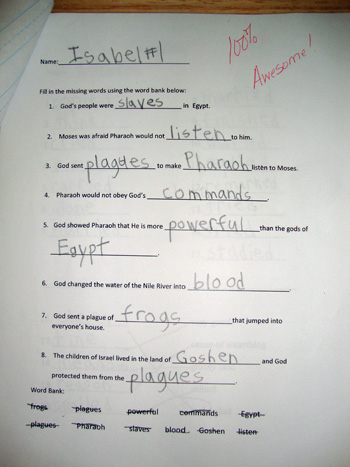 Name: Isabel #1
100%
Awesome!
Fill in the missing words using the word bank below:
1. God's people were slaves in Egypt.
2. Moses was afraid Pharaoh would not listen to him.
3. God sent plagues to make Pharaoh listen to Moses.
4. Pharaoh would not obey God's commands.
5. God showed Pharaoh that He is more powerful than the gods of
Egypt.
6. God changed the water of the Nile River into blood.
7. God sent a plague of frogs that jumped into
everyone's house.
8. The children of Israel lived in the land of Goshen and God
protected them from the plagues.
Word Bank:
frogs plagues powerful commands Egypt
plagues Pharaoh slaves blood Goshen listen